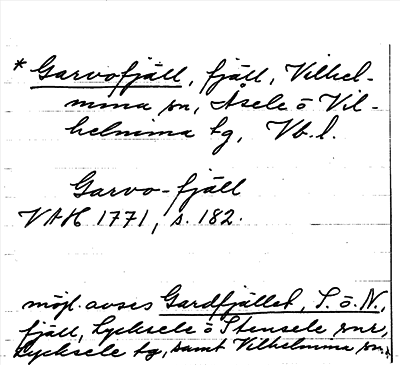 * Garvofjäll, fjäll, Vilhel-
mina sn, Åsele o Vil-
helmina tg, Vb. l.
Garvo-fjäll
VAH 1771, s. 182.
möjl. avses Gardfjället, S. o. N.,
fjäll, Lycksele o Stensele snr,
Lycksele tg, samt Vilhelmina sn.